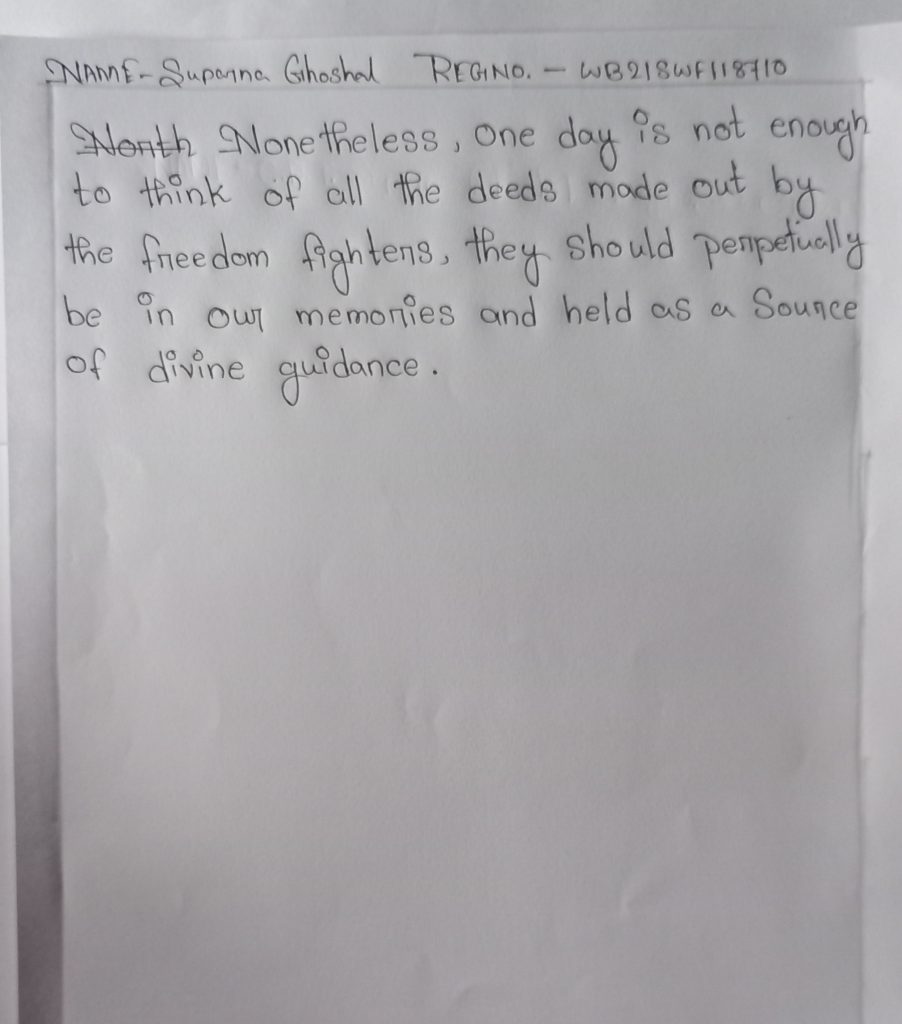 NAME - Suparna Ghoshal REGINO. - WB21SWF118710
North Nonetheless, One day is not enough
to think of all the deeds made out by
the freedom fighters, they should perpetually
be in our memories and held as a Source
of divine guidance.